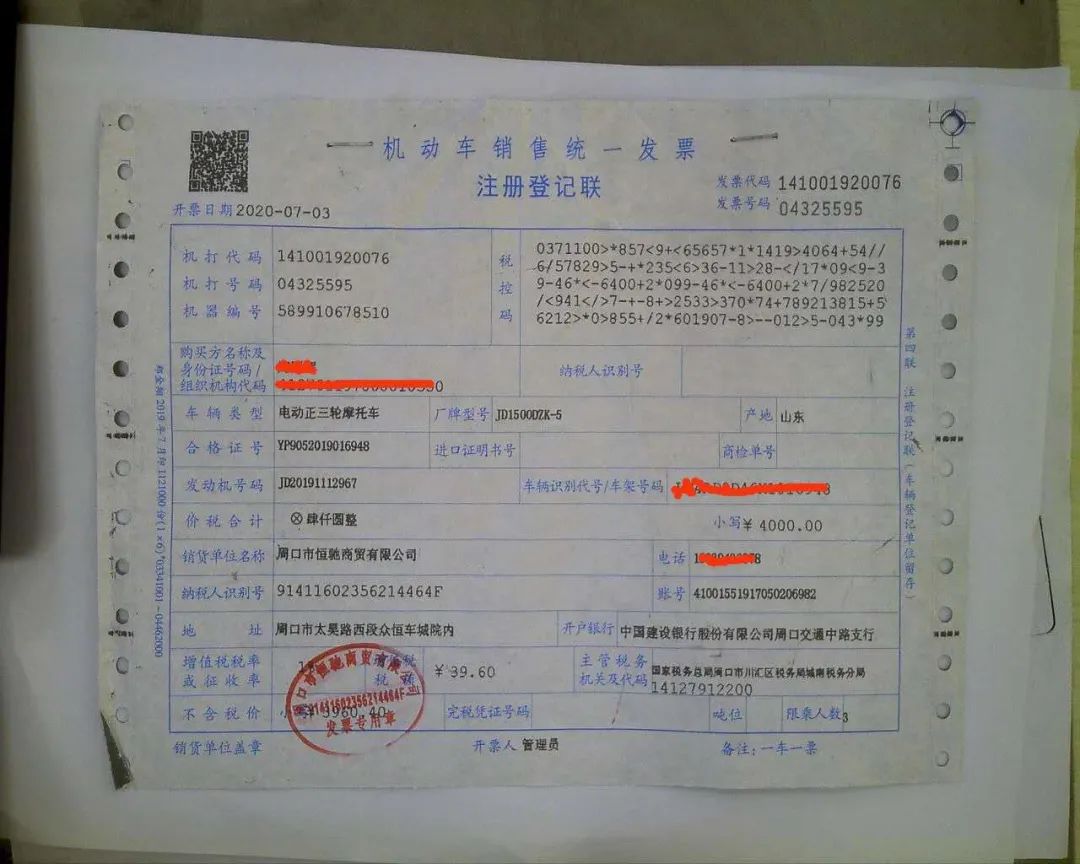 机动车销售统一发票
注册登记联
发票代码 141001920076
发票号码 04325595
开票日期 2020-07-03
机打代码 141001920076
机打号码 04325595
机器编号 589910678510
税控码
0371100>*857<9+<65657*1*1419>4064+54//
6/57829>5-+*235<6>36-11>28-</17*09<9-3
9-46*<-6400+2*099-46*<-6400+2*7/982520
/<941</>7-+-8+>2533>370*74+789213815+5
6212>*0>855+/2*601907-8>--012>5-043*99
购买方名称及
身份证号码/
组织机构代码
纳税人识别号
车辆类型 电动正三轮摩托车 厂牌型号 JD1500DZK-5 产地 山东
合格证号 YP9052019016948 进口证明书号 商检单号
发动机号码 JD20191112967 车辆识别代号/车架号码
价税合计 ⊗肆仟圆整 小写 ¥ 4000.00
销货单位名称 周口市恒驰商贸有限公司 电话
纳税人识别号 91411602356214464F 账号 41001551917050206982
地址 周口市太昊路西段众恒车城院内 开户银行 中国建设银行股份有限公司周口交通中路支行
增值税税率
或征收率
¥39.60
主管税务
机关及代码
国家税务总局周口市川汇区税务局城南税务分局
14127912200
不含税价 ¥3960.40 完税凭证号码 吨位 限乘人数 3
周口市恒驰商贸有限公司
91411602356214464F
发票专用章
销货单位盖章 开票人 管理员 备注:一车一票
第四联 注册登记联(车辆登记单位留存)